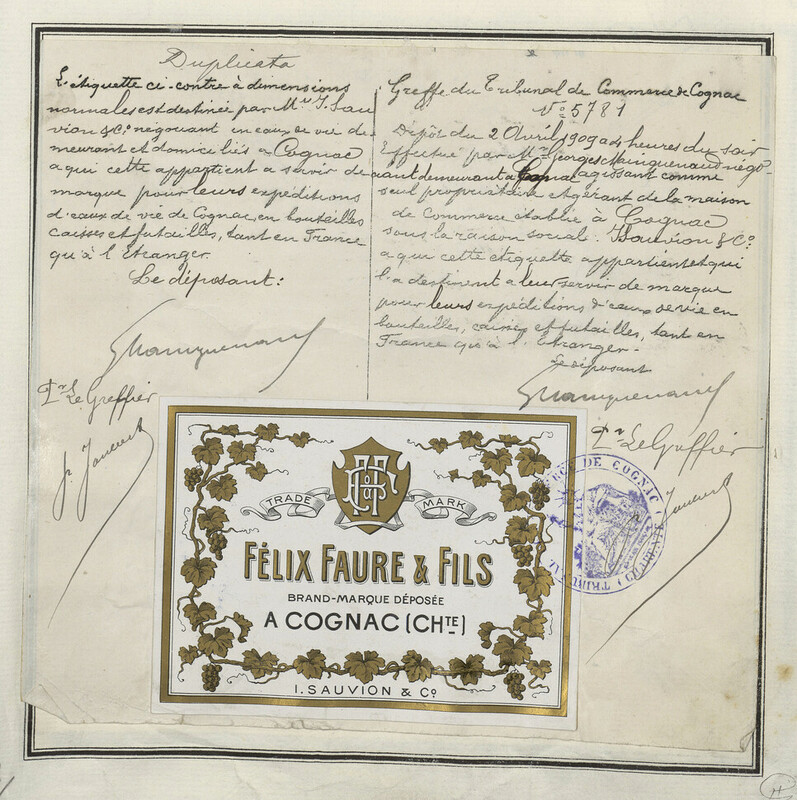 Duplicata
L'étiquette ci-contre à dimensions
normales est destinée par Mrs I. Sau
vion & Co négociant en eaux de vie de
meurant et domiciliés à Cognac
a qui cette appartient a servir de
marque pour leurs expéditions
d'eaux de vie de Cognac, en bouteilles
caisses et futailles, tant en France
qu'à l'Etranger.
Le déposant:
Pr Le Greffier
Greffe du Tribunal de Commerce de Cognac
No 5781
Dépôt du 2 Avril 1909 a 4 heures du soir
Effectué par Mr Georges Mainguenaud négo-
ciant demeurant a Cognac agissant comme
seul propriétaire et gérant de la maison
de Commerce établie à Cognac
sous la raison social. I. Sauvion & Co.
a qui cette étiquette appartient et qui
l'a destinent a leur servir de marque
pour leurs expéditions d'eaux de vie en
bouteilles, caisses et futailles, tant en
France qu'à l'Etranger.
Le déposant
Pr Le Greffier
DE COGNAC
TRADE MARK
FÉLIX FAURE & FILS
BRAND-MARQUE DÉPOSÉE
A COGNAC (CHTE)
I. SAUVION & Co